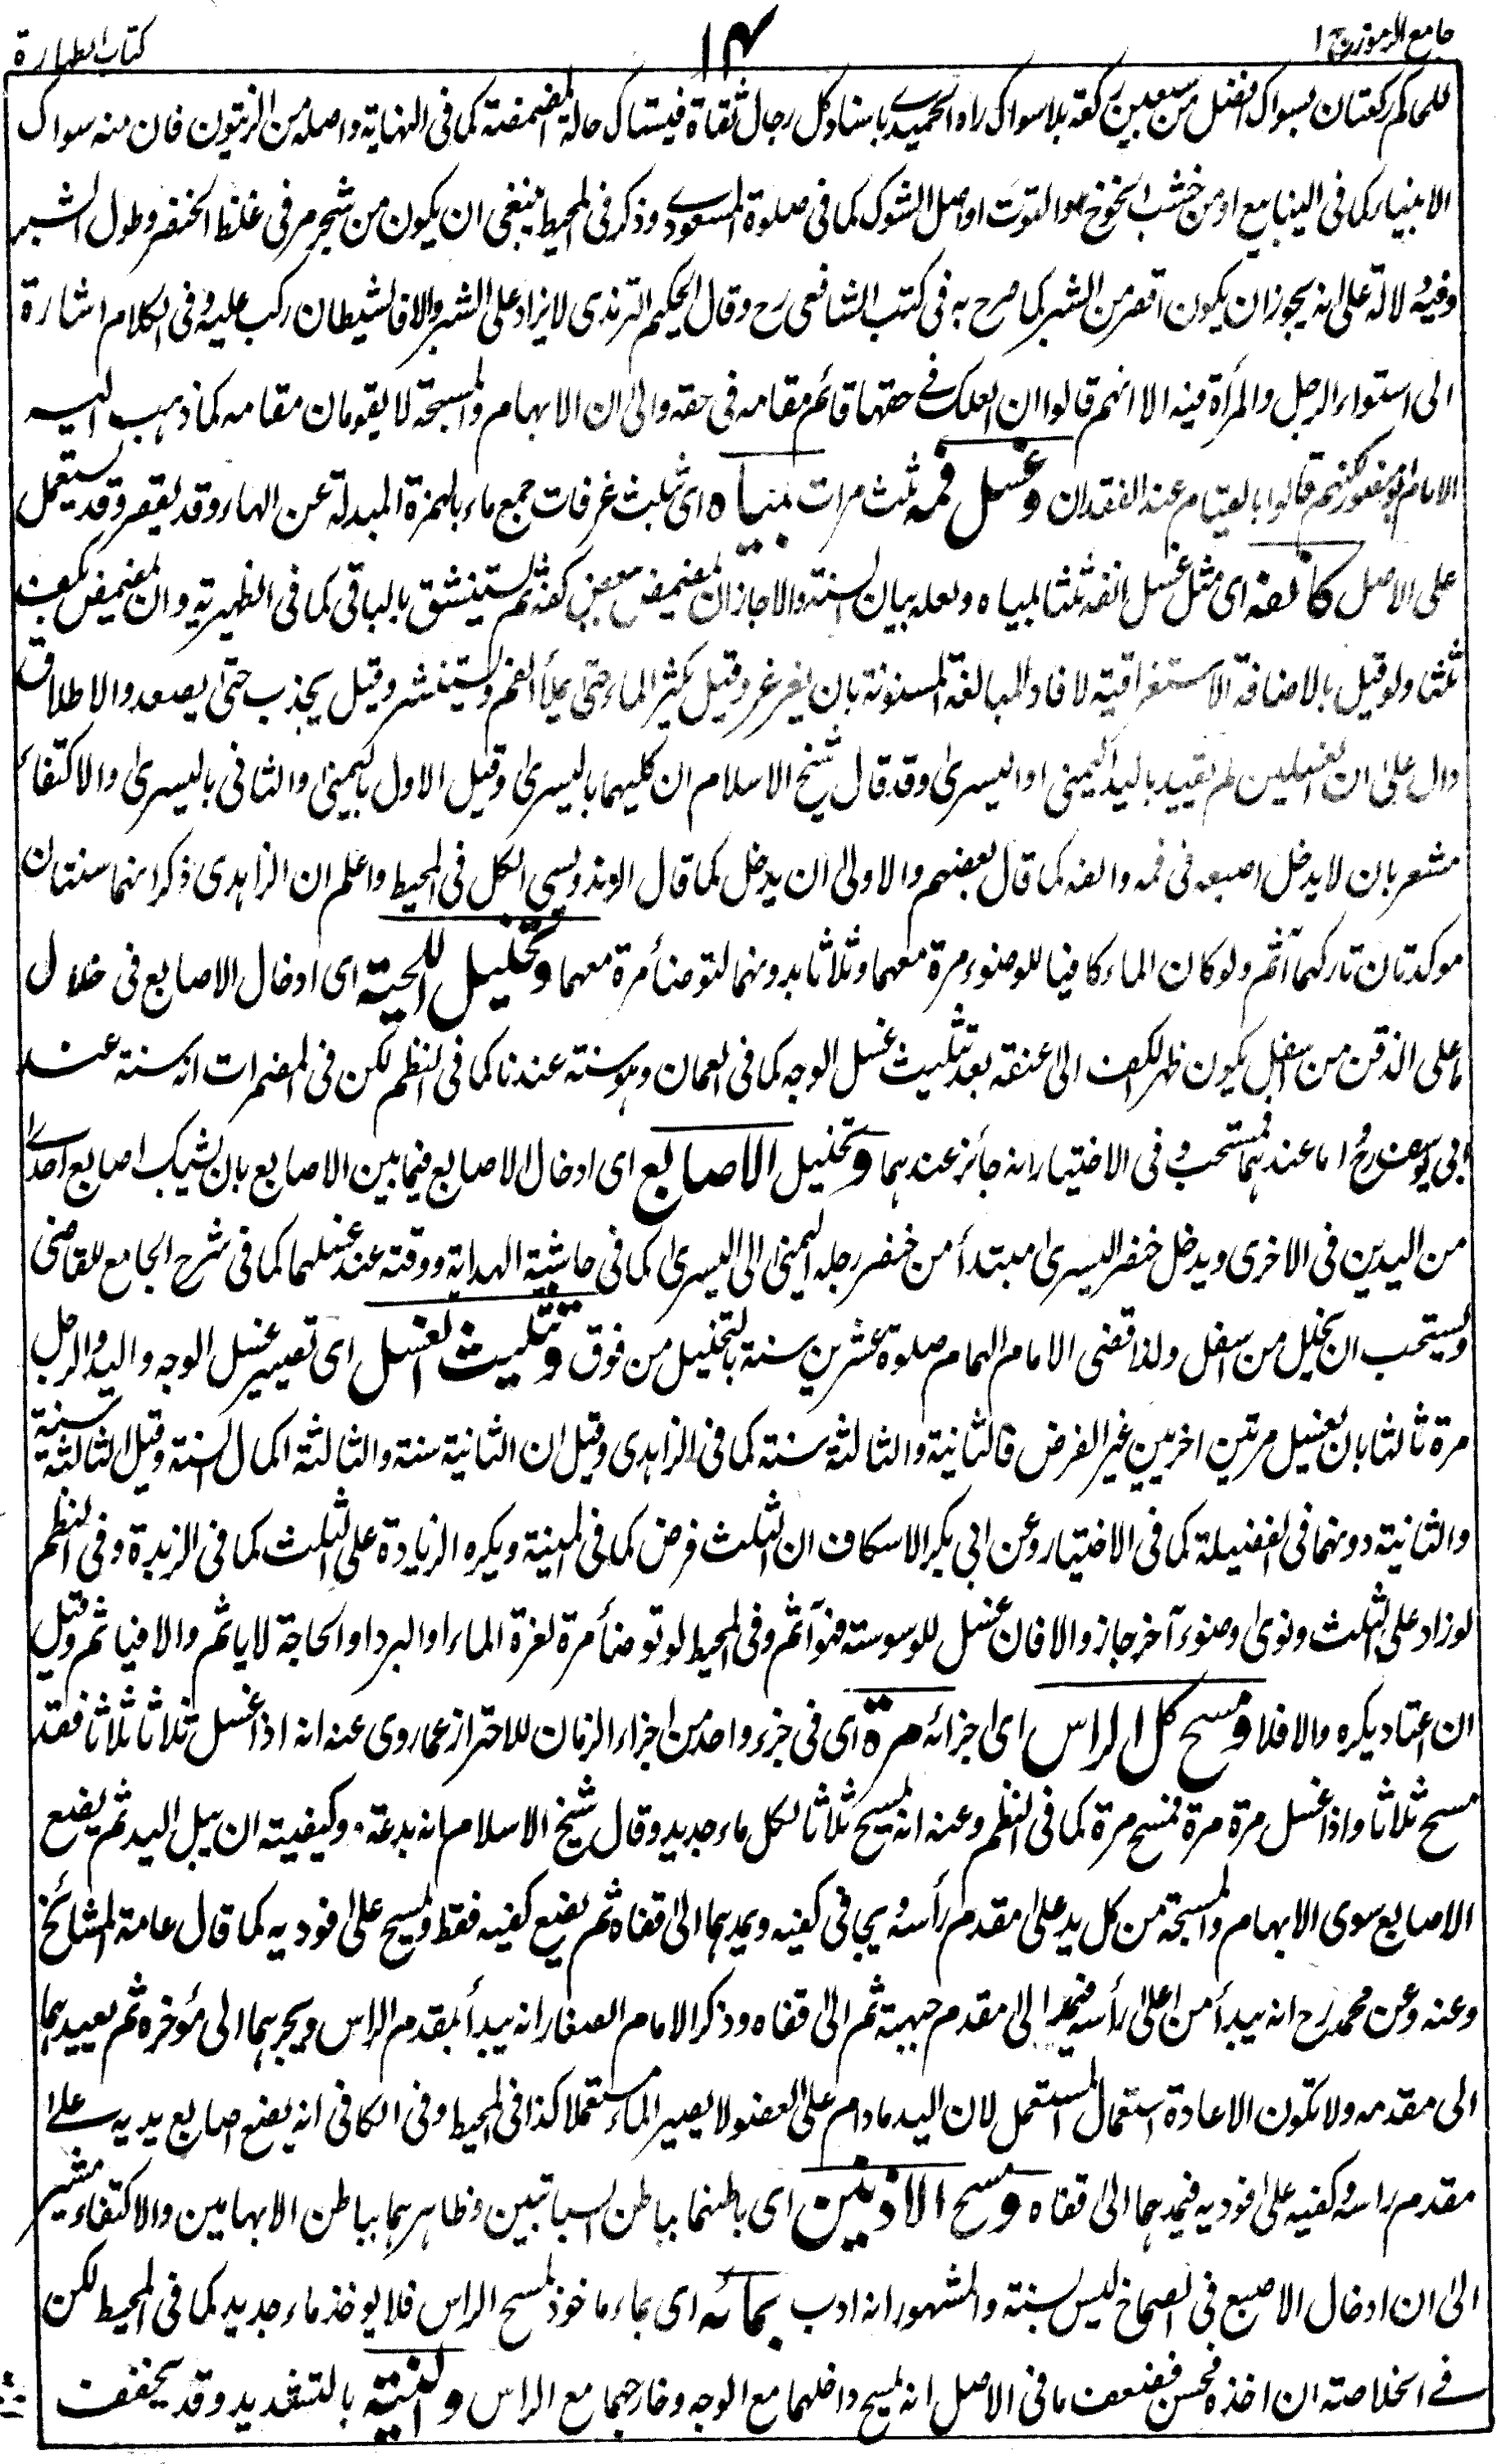 جامع الرموز ج ١
١٤
كتاب الطهارة
للحاكم ركعتان بسواك افضل من سبعين ركعة بلا سواك رواه الحميدي باسناد كل رجال ثقاة فيستاك حالة المضمضة كما في النهاية واصله من الزيتون فان منه سواك
الانبياء كما في الينابيع او من خشب الخوخ والتوت او اصل الشوك كما في صلوة المسعودي وذكر في المحيط ينبغي ان يكون من شجر مر في غلظ الخنصر وطول الشبر
وفيه دلالة على انه يجوز ان يكون اقصر من الشبر كما صرح به في كتب الشافعي رح وقال الحكيم الترمذي لا يزاد على الشبر والا فالشيطان ركب عليه وفي الكلام اشارة
الى استواء الرجل والمرأة فيه الا انهم قالوا ان العلك في حقها قائم مقامه في حقه والى ان الابهام والمسبحة لا يقومان مقامه كما ذهب اليه
الامام ابو منصور لكنهم قالوا بالقيام عند الفقدان وغسل فمه ثلث مرات بمياه اى بثلث غرفات جمع ماء بالهمزة المبدلة عن الهاء وقد يقصر وقد يستعمل
على الاصل كانفه اى مثل غسل انفه ثلثا بمياه ولعله بيان السنة والا جاز ان يمضمض ببعض كفه ثم يستنشق بالباقي كما في الظهيرية وان يمضمض بكف
ثلثا ولو قيل بالاضافة الاستغراقية لافاد المبالغة المسنونة بان يغرغر وقيل يكثر الماء حتى يملأ الفم ويستنشر وقيل يجذب حتى يصعد والاطلاق
دال على ان الغسلين لم يقيد باليد اليمنى او اليسرى وقد قال شيخ الاسلام ان كليهما باليسرى وقيل الاول باليمنى والثاني باليسرى والاكتفاء
مشعر بان لا يدخل اصبعه في فمه وانفه كما قال بعضهم والاولى ان يدخل كما قال الزندويسي الكل في المحيط واعلم ان الزاهدي ذكر انهما سنتان
موكدتان تاركهما آثم ولو كان الماء كافيا للوضوء مرة معهما وثلاثا بدونهما لتوضأ مرة معهما وتخليل اللحية اى ادخال الاصابع في خلال
ما على الذقن من اسفل يكون ظهر الكف الى عنقه بعد تثليث غسل الوجه كما في العمان وهو سنة عندنا كما في النظم لكن في المضمرات انه سنة عند
ابي يوسف رح اما عندهما فمستحب وفي الاختيار انه جائز عندهما وتخليل الاصابع اى ادخال الاصابع فيما بين الاصابع بان يشبك اصابع احدى
من اليدين في الاخرى ويدخل خنصر اليسرى مبتدأ من خنصر رجله اليمنى الى اليسرى كما في حاشية الهداية ووقته عند غسلهما كما في شرح الجامع للقاضي
ويستحب ان يخلل من اسفل ولذا قضى الامام الهمام صلوة عشرين سنة بالتخليل من فوق وتثليث الغسل اى تصيير غسل الوجه واليد والرجل
مرة ثالثا بان يغسل مرتين اخريين غير الفرض فالثانية والثالثة سنة كما في الزاهدي وقيل ان الثانية سنة والثالثة اكمال السنة وقيل الثالثة سنة
والثانية دونها في الفضيلة كما في الاختيار وعن ابي بكر الاسكاف ان الثلث فرض كما في المنية ويكره الزيادة على الثلث كما في الزبدة وفي النظم
لو زاد على الثلث ونوى وضوء آخر جاز والا فان غسل للوسوسة فهو آثم وفي المحيط لو توضأ مرة لعزة الماء او البرد او الحاجة لا ياثم والا فياثم وقيل
ان اعتاد يكره والا فلا ومسح كل الراس اى اجزائه مرة اى في جزء واحد من اجزاء الزمان للاحتراز عما روى عنه انه اذا غسل ثلاثا ثلاثا فقد
مسح ثلاثا واذا غسل مرة مرة فمسح مرة كما في النظم وعنه انه يمسح ثلاثا لكل ماء جديد وقال شيخ الاسلام انه بدعة وكيفيته ان يبل اليد ثم يضع
الاصابع سوى الابهام والمسبحة من كل يد على مقدم رأسه ويجافي كفيه ويمدهما الى قفاه ثم يضع كفيه فقط ويمسح على فوديه كما قال عامة المشائخ
وعنه وعن محمد رح انه يبدأ من اعلى رأسه فيمد الى مقدم جبهته ثم الى قفاه وذكر الامام الصفار انه يبدأ بمقدم الراس ويجرهما الى مؤخره ثم يعيدهما
الى مقدمه ولا تكون الاعادة استعمال المستعمل لان اليد ما دام على العضو لا يصير الماء مستعملا كذا في المحيط وفي الكافي انه يضع اصابع يديه على
مقدم راسه وكفيه على فوديه فيمدهما الى قفاه ومسح الاذنين اى باطنهما بباطن السبابتين وظاهرهما بباطن الابهامين والاكتفاء مشير
الى ان ادخال الاصبع في الصماخ ليس بسنة والمشهور انه ادب بمائه اى بماء ماخوذ لمسح الراس فلا يوخذ ماء جديد كما في المحيط لكن
في الخلاصة ان اخذه فحسن فضعف ما في الاصل انه يمسح داخلهما مع الوجه وخارجهما مع الراس والنية بالتشديد وقد يخفف